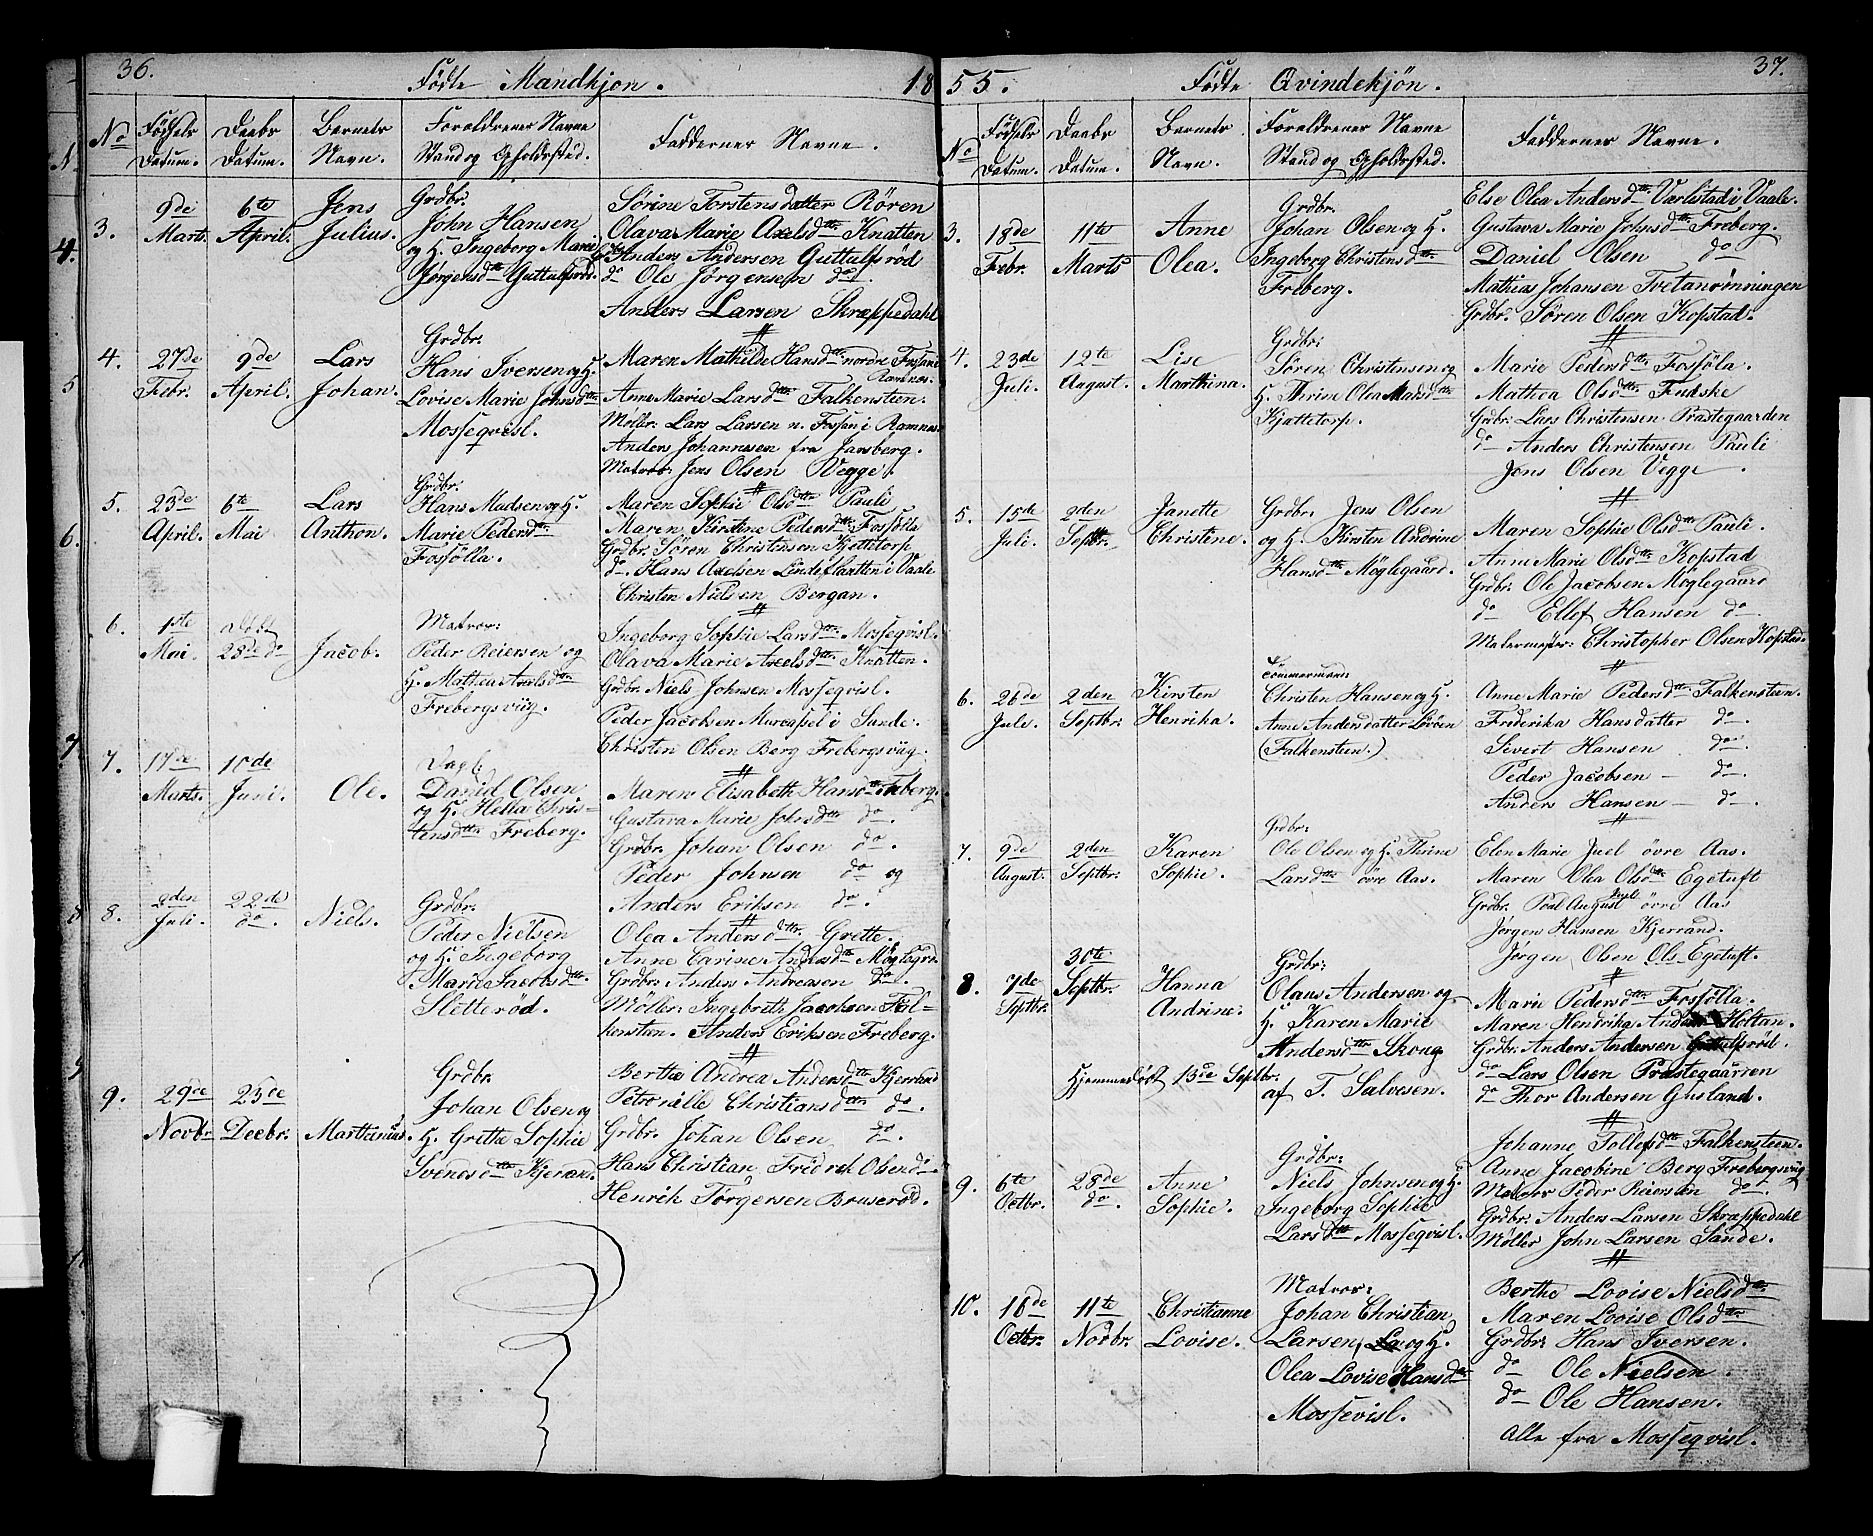 36.
Födte Mandkjøn.
1855.
No
Födsels Datum.
Daabs Datum.
Barnets Navn.
Foreldrenes Navne Stand og Opholdssted.
Faddernes Navne.
3.
9de Marts.
6te April.
Jens Julius.
Grdbr.
John Hansen
og H. Ingeborg Marie
Jørgensdttr Guttulfsröd.
Sörine Torstensdatter Rören
Olava Marie Axelsdttr Knatten
Anders Andersen Guttulfsröd
do Ole Jørgensen do.
Anders Larsen Skræppedahl
4.
27de Febr.
9de April.
Lars Johan.
Grdbr.
Hans Iversen og H.
Lovise Marie Johnsdttr
Mosseqvisl.
Maren Mathilde Hansdttr nordre Fossan i
Ramnes.
Anne Marie Larsdttr Falkenstien.
Møller: Lars Larsen n. Fossan i Ramnes
Anders Johannesen fra Jarsberg.
Matros: Jens Olsen Vegge.
5.
23de April.
6te Mai
Lars Anthon.
Grdbr.
Hans Madsen og H.
Marie Pedersdttr
Fosfölla.
Maren Sophie Olsdttr Pauli
Maren Kirstine Pedersdttr Fosfölla
Grdbr. Sören Christensen Kjettetorp
do. Hans Axelsen Lindeflaatten i Vaale
Christen Nielsen Bergan.
6.
1ste Mai.
28de do
Jacob.
Matros:
Peder Reiersen og
H. Mathea Axelsdttr
Frebergsviig.
Ingeborg Sophie Larsdttr Mosseqvisl.
Olava Marie Axelsdttr Knatten.
Grdbr. Niels Johnsen Mosseqvisl.
Peder Jacobsen Murcassel i Sande.
Christen Olsen Berg Frebergsviig.
7.
17de Marts.
10de Juni.
Ole.
Dagl.
David Olsen
og H. Hella Chris-
tensdttr Freberg.
Maren Elisabeth Hansdttr Freberg.
Gustava Marie Johnsdttr do.
Grdbr. Johan Olsen do.
Peder Johnsen do og
Anders Eriksen do.
8.
2den Juli.
22de do.
Niels.
Grdbr.
Peder Nielsen
og H. Ingeborg
Marie Jacobsdttr
Sletteröd.
Olea Andersdttr Grette.
Anne Carine Andersdttr Møglegrd.
Grdbr: Anders Andersen do.
Møller: Ingebreth Jacobsen Fal-
kensten. Anders Eriksen Freberg.
9.
29de Novbr.
25de Decbr.
Marthinius.
Grdbr.
Johan Olsen og
H. Grethe Sophie
Svendsdttr Kjeran.
Berthe Andrea Andersdttr Kjerrand
Petronille Christiansdttr do.
Grdbr. Johan Olsen do.
Hans Christian Fridrich Olsen do
Henrik Törgersen Bruseröd.
37.
Födte Qvindekjön.
No
Födsels Datum.
Daabs Datum.
Barnets Navn.
Foreldrenes Navne Stand og Opholdssted.
Faddernes Navne.
3.
18de Febr.
11te Marts
Anne Olea.
Grdbr.
Johan Olsen og H.
Ingeborg Christensdttr
Freberg.
Else Olea Andersdttr Værlistad i Vaale.
Gustava Marie Johnsdttr Freberg.
Daniel Olsen do
Mathias Johansen Tretanrönningen
Grdbr. Sören Olsen Kopstad.
4.
23de Juli.
12te August.
Lise Marthina.
Grdbr:
Sören Christensen og
H. Thrine Olea Madsdttr
Kjættetorp.
Marie Pedersdttr Fosföla.
Mathea Olsdttr Fuske
Grdbr: Lars Christensen Præstegaarden
do Anders Christensen Pauli
Jens Olsen Vegge.
5.
15de Juli.
2den Septbr.
Janette Christine.
Grdbr. Jens Olsen
og H. Kirsten Andrine
Hansdttr Møglegaard.
Maren Sophie Olsdttr Pauli.
Anne Marie Olsdttr Kopstad
Grdbr: Ole Jacobsen Møglegaard
do Ellef Hansen do
Malermester: Christopher Olsen Kopstad.
6.
26de Juli.
2den Septbr:
Kirsten Henrika.
Tömmermand:
Christen Hansen og H.
Anne Andersdatter Lövöen
(Falkensteen.)
Anne Marie Pedersdttr Falkensteen.
Frederika Hansdatter do.
Sivert Hansen do.
Peder Jacobsen — do.
Anders Hansen — do.
7.
9de August.
2den Septbr:
Karen Sophie.
Grdbr:
Ole Olsen og H. Thrine
Larsdttr övre Aas.
Elen Marie Juel övre Aas.
Maren Olea Olsdttr Egetuft
Grdbr. Poul August Juel övre Aas
Jørgen Hansen Kjerrand.
Jørgen Olsen Ols Egetuft.
8.
7de Septbr.
30te Septbr.
Hanna Andrine.
Grdbr:
Olaus Andersen og
H. Karen Marie
Andersdttr Skoug
Hjemmedöbt 13de Septbr.
af T. Salvesen.
Marie Pedersdttr Fosfölla.
Maren Hendrika Holtan.
Grdbr: Anders Andersen Guttulfsröd.
do Lars Olsen Præstegaarren
do Thor Andersen Gusland.
9.
6te Octbr.
28de do.
Anne Sophie.
Grdbr:
Niels Johnsen og H.
Ingeborg Sophie
Larsdttr Mosseqvisl.
Johanne Tollefsdttr Falkensteen.
Anne Jacobine Berg Frebergsviig
Matros Peder Reiersen do.
Grdbr: Anders Larsen Skræppedahl
Møller John Larsen Sande.
10.
16de Octbr.
11te Novbr.
Christianne Lovise.
Matros:
Johan Christian
Larsen, og H.
Olea Lovise Hansdttr
Mossevisl.
Berthe Lovise Nielsdttr
Maren Lovise Olsdttr
Grdbr: Hans Iversen.
do Ole Nielsen.
do Ole Hansen.
Alle fra Mosseqvisl.